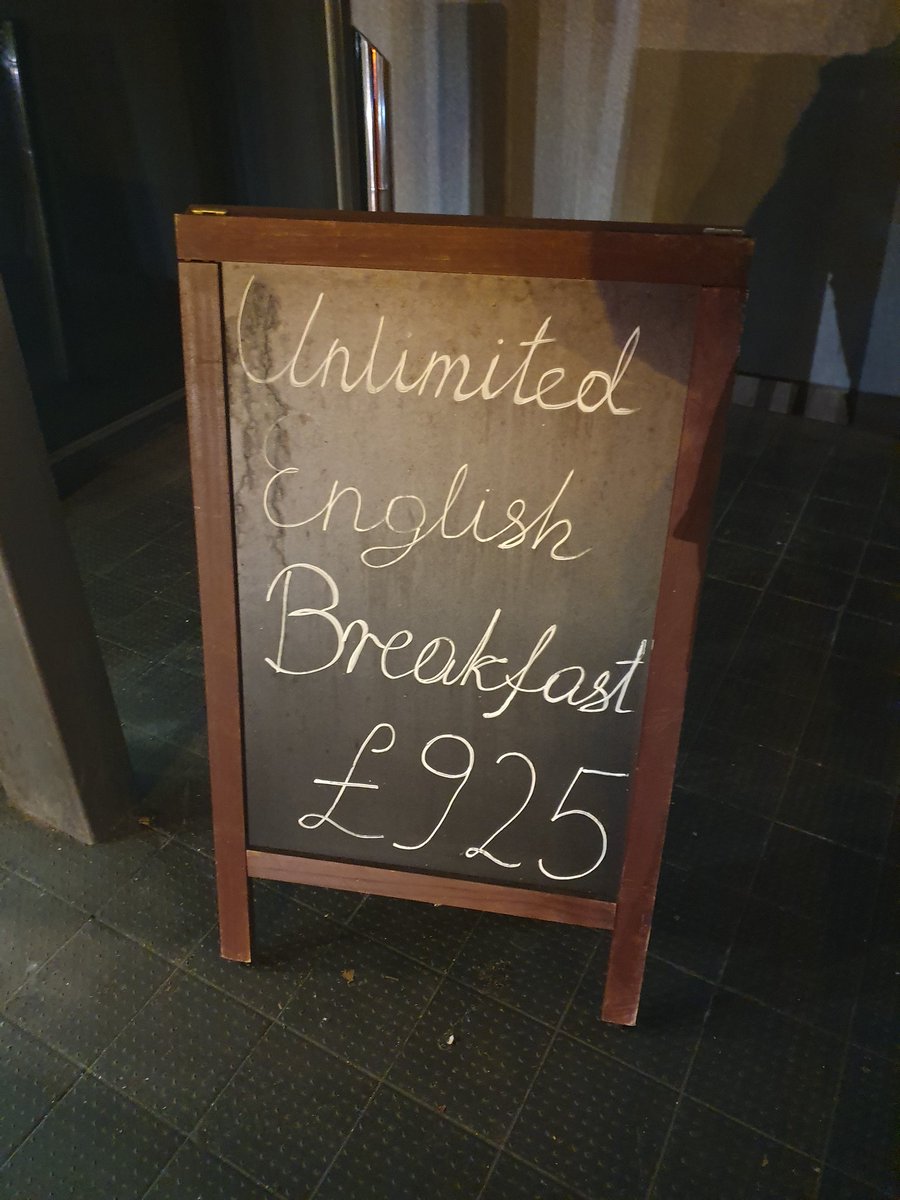 Unlimited
English
Breakfast
£925